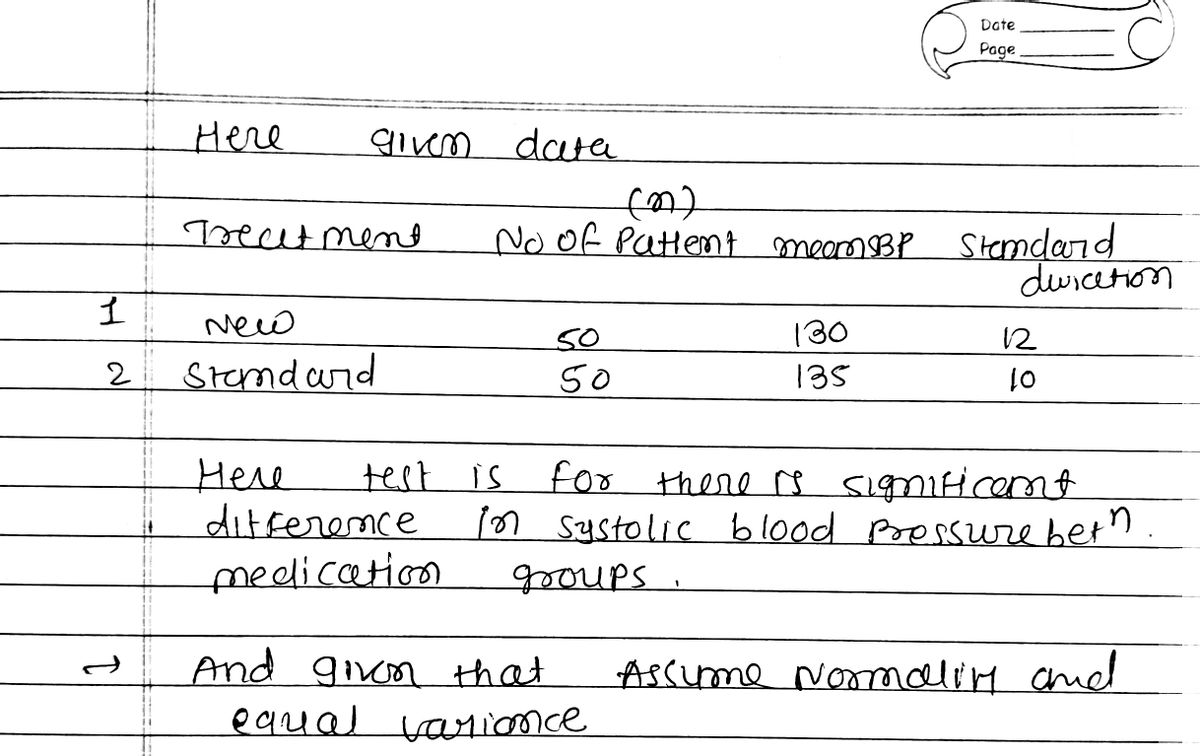 Date
Page
Here given data
(n)
Treatment No of Patient mean SBP Standard
deviation
1 New 50 130 12
2 Standard 50 135 10
Here test is for there is significant
difference in systolic blood pressure betn.
medication groups.
→ And given that Assume Normality and
equal variance